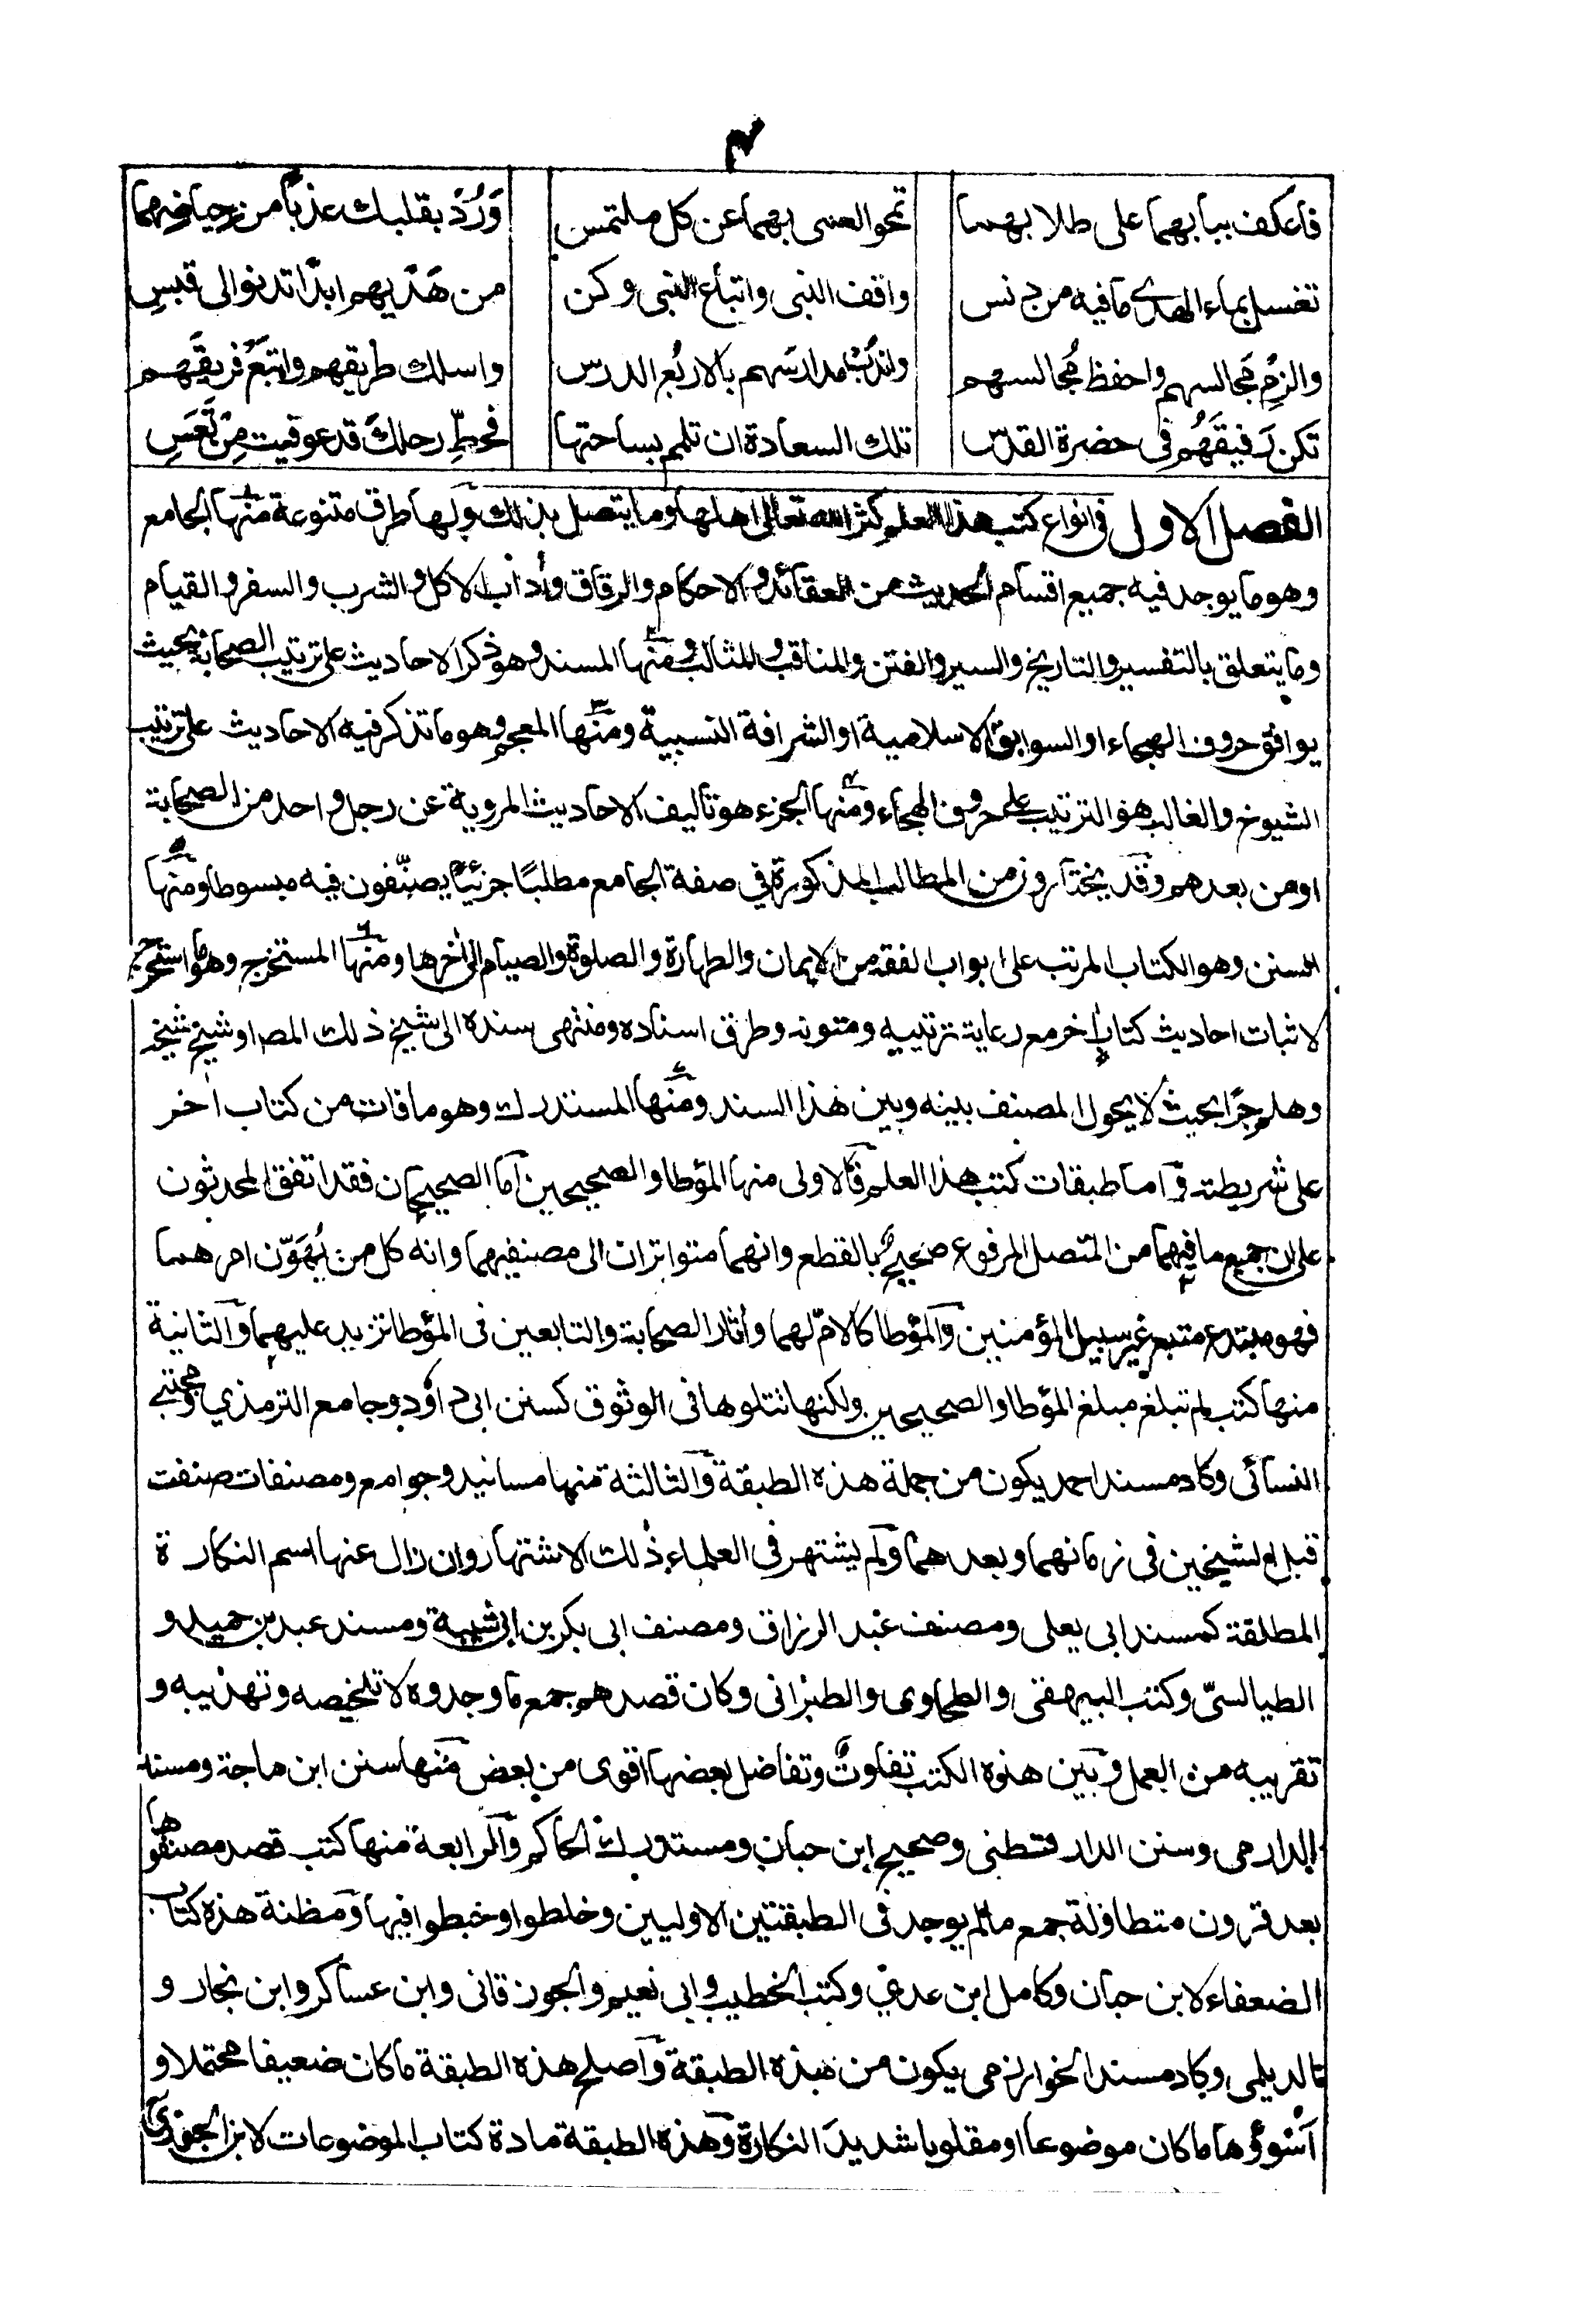 ۴
فاعكف ببابهما على طلابهما تمحو العمى بهما عن كل ملتمس وَرُدْ بقلبك عذبًا من حياضهما
تغسل بماء الهدى ما فيه من دنس واقف النبى واتباع النبى وكن من هَدْيهم ابدًا تدنوا لى قبسِ
والزم مجالسهم واحفظ مُجالسهم واندُبْ مدارسَهم بالاربُعِ الدرس واسلك طريقهم واتبَعْ فريقَهم
تكن رَفيقَهُم فى حضرة القدس تلك السعادة ان تلمم بساحتها فحطِّ رحلكَ قد عوفيت مِنْ تَعَسِ
الفصل الاولى فى انواع كتب هذا العلم كثر الله تعالى اهلها وما يتصل بذلك ولها طرق متنوعة منها الجامع
وهو ما يوجد فيه جميع اقسام الحديث من العقائد والاحكام والرقاق واٰداب الاكل والشرب والسفر والقيام
وما يتعلق بالتفسير والتاريخ والسير والفتن والمناقب والمثالب ومنها المسند وهو ذكر الاحاديث على ترتيب الصحابة بحيث
يوافق حروف الهجاء او السوابق الاسلامية او الشرافة النسبية ومنها المعجم وهو ما تذكر فيه الاحاديث على ترتيب
الشيوخ والغالب هو الترتيب على حروف الهجاء ومنها الجزء هو تاليف الاحاديث المروية عن رجل واحد من الصحابة
اومن بعدهم وقد يختارون من المطالب المذكورة فى صفة الجامع مطلبًا جزئيًا يصنّفون فيه مبسوطا ومنها
السنن وهو الكتاب المرتب على ابواب الفقه من الايمان والطهارة والصلوة والصيام الى اٰخرها ومنها المستخرج وهو ما استخرج
لاثبات احاديث كتاب اٰخر مع رعاية ترتيبه ومتونه وطرق اسناده ومنتهى سنده الى شيخ ذلك المص او شيخ شيخه
وهلم جرًّا بحيث لا يحول المصنف بينه وبين هذا السند ومنها المستدرك وهو ما فات من كتاب اٰخر
على شريطته واما طبقات كتب هذا العلم فالاولى منها المؤطا والصحيحين اما الصحيحان فقد اتفق المحدثون
على ان جميع ما فيهما من المتصل المرفوع صحيح بالقطع وانهما متواتران الى مصنفيهما وانه كل من يُهَوّن امرهما
فهو مبتدع متبع غير سبيل المؤمنين والمؤطا كالامّ لهما واٰثار الصحابة والتابعين فى المؤطا تزيد عليهما والثانية
منها كتب لم تبلغ مبلغ المؤطا والصحيحين ولكنها تتلوها فى الوثوق كسنن ابى داؤد وجامع الترمذي ومجتبى
النسائى وكاد مسند احمد يكون من جملة هذه الطبقة والثالثة منها مسانيد وجوامع ومصنفات صنفت
قبل الشيخين فى زمانهما وبعدهما ولم يشتهر فى العلماء ذلك الاشتهار وان زال عنها اسم النكارة
المطلقة كمسند ابى يعلى ومصنف عبد الرزاق ومصنف ابى بكر بن ابى شيبة ومسند عبد بن حميد و
الطيالسىّ وكتب البيهقى والطحاوى والطبرانى وكان قصدهم جمع ما وجدوه لا تلخيصه وتهذيبه و
تقريبه من العمل وبين هذه الكتب تفاوت وتفاضل بعضها اقوى من بعض منها سنن ابن ماجة ومسند
الدارمى وسنن الدارقطنى وصحيح ابن حبان ومستدرك الحاكم والرابعة منها كتب قصد مصنفوها
بعد قرون متطاولة جمع ما لم يوجد فى الطبقتين الاوليين وخلطوا وخبطوا فيها ومظنة هذه كتاب
الضعفاء لابن حبان وكامل ابن عدى وكتب الخطيب وابى نعيم والجوزقانى وابن عساكر وابن نجار و
الديلمى وكاد مسند الخوارزمى يكون من هذه الطبقة واصلح هذه الطبقة ما كان ضعيفا محتملا و
اسوؤها ما كان موضوعا او مقلوبا شديدَ النكارة وهذه الطبقة مادة كتاب الموضوعات لابن الجوزى